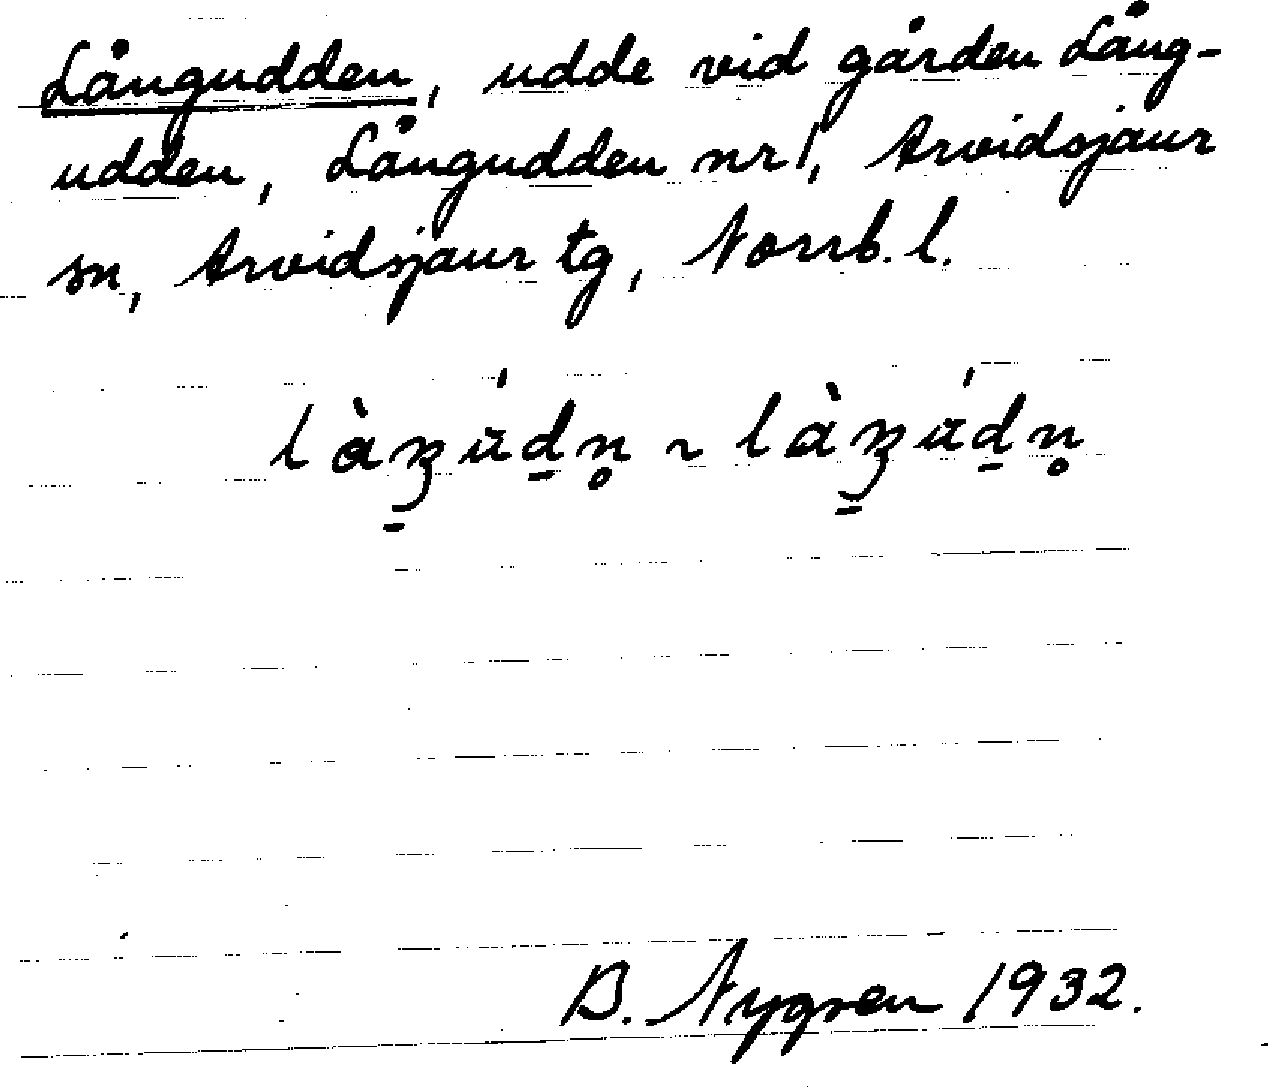 Långudden, udde vid gården Lång-
udden, Långudden nr 1, Arvidsjaur
sn, Arvidsjaur tg, Norrb. l.
B. Nygren 1932.